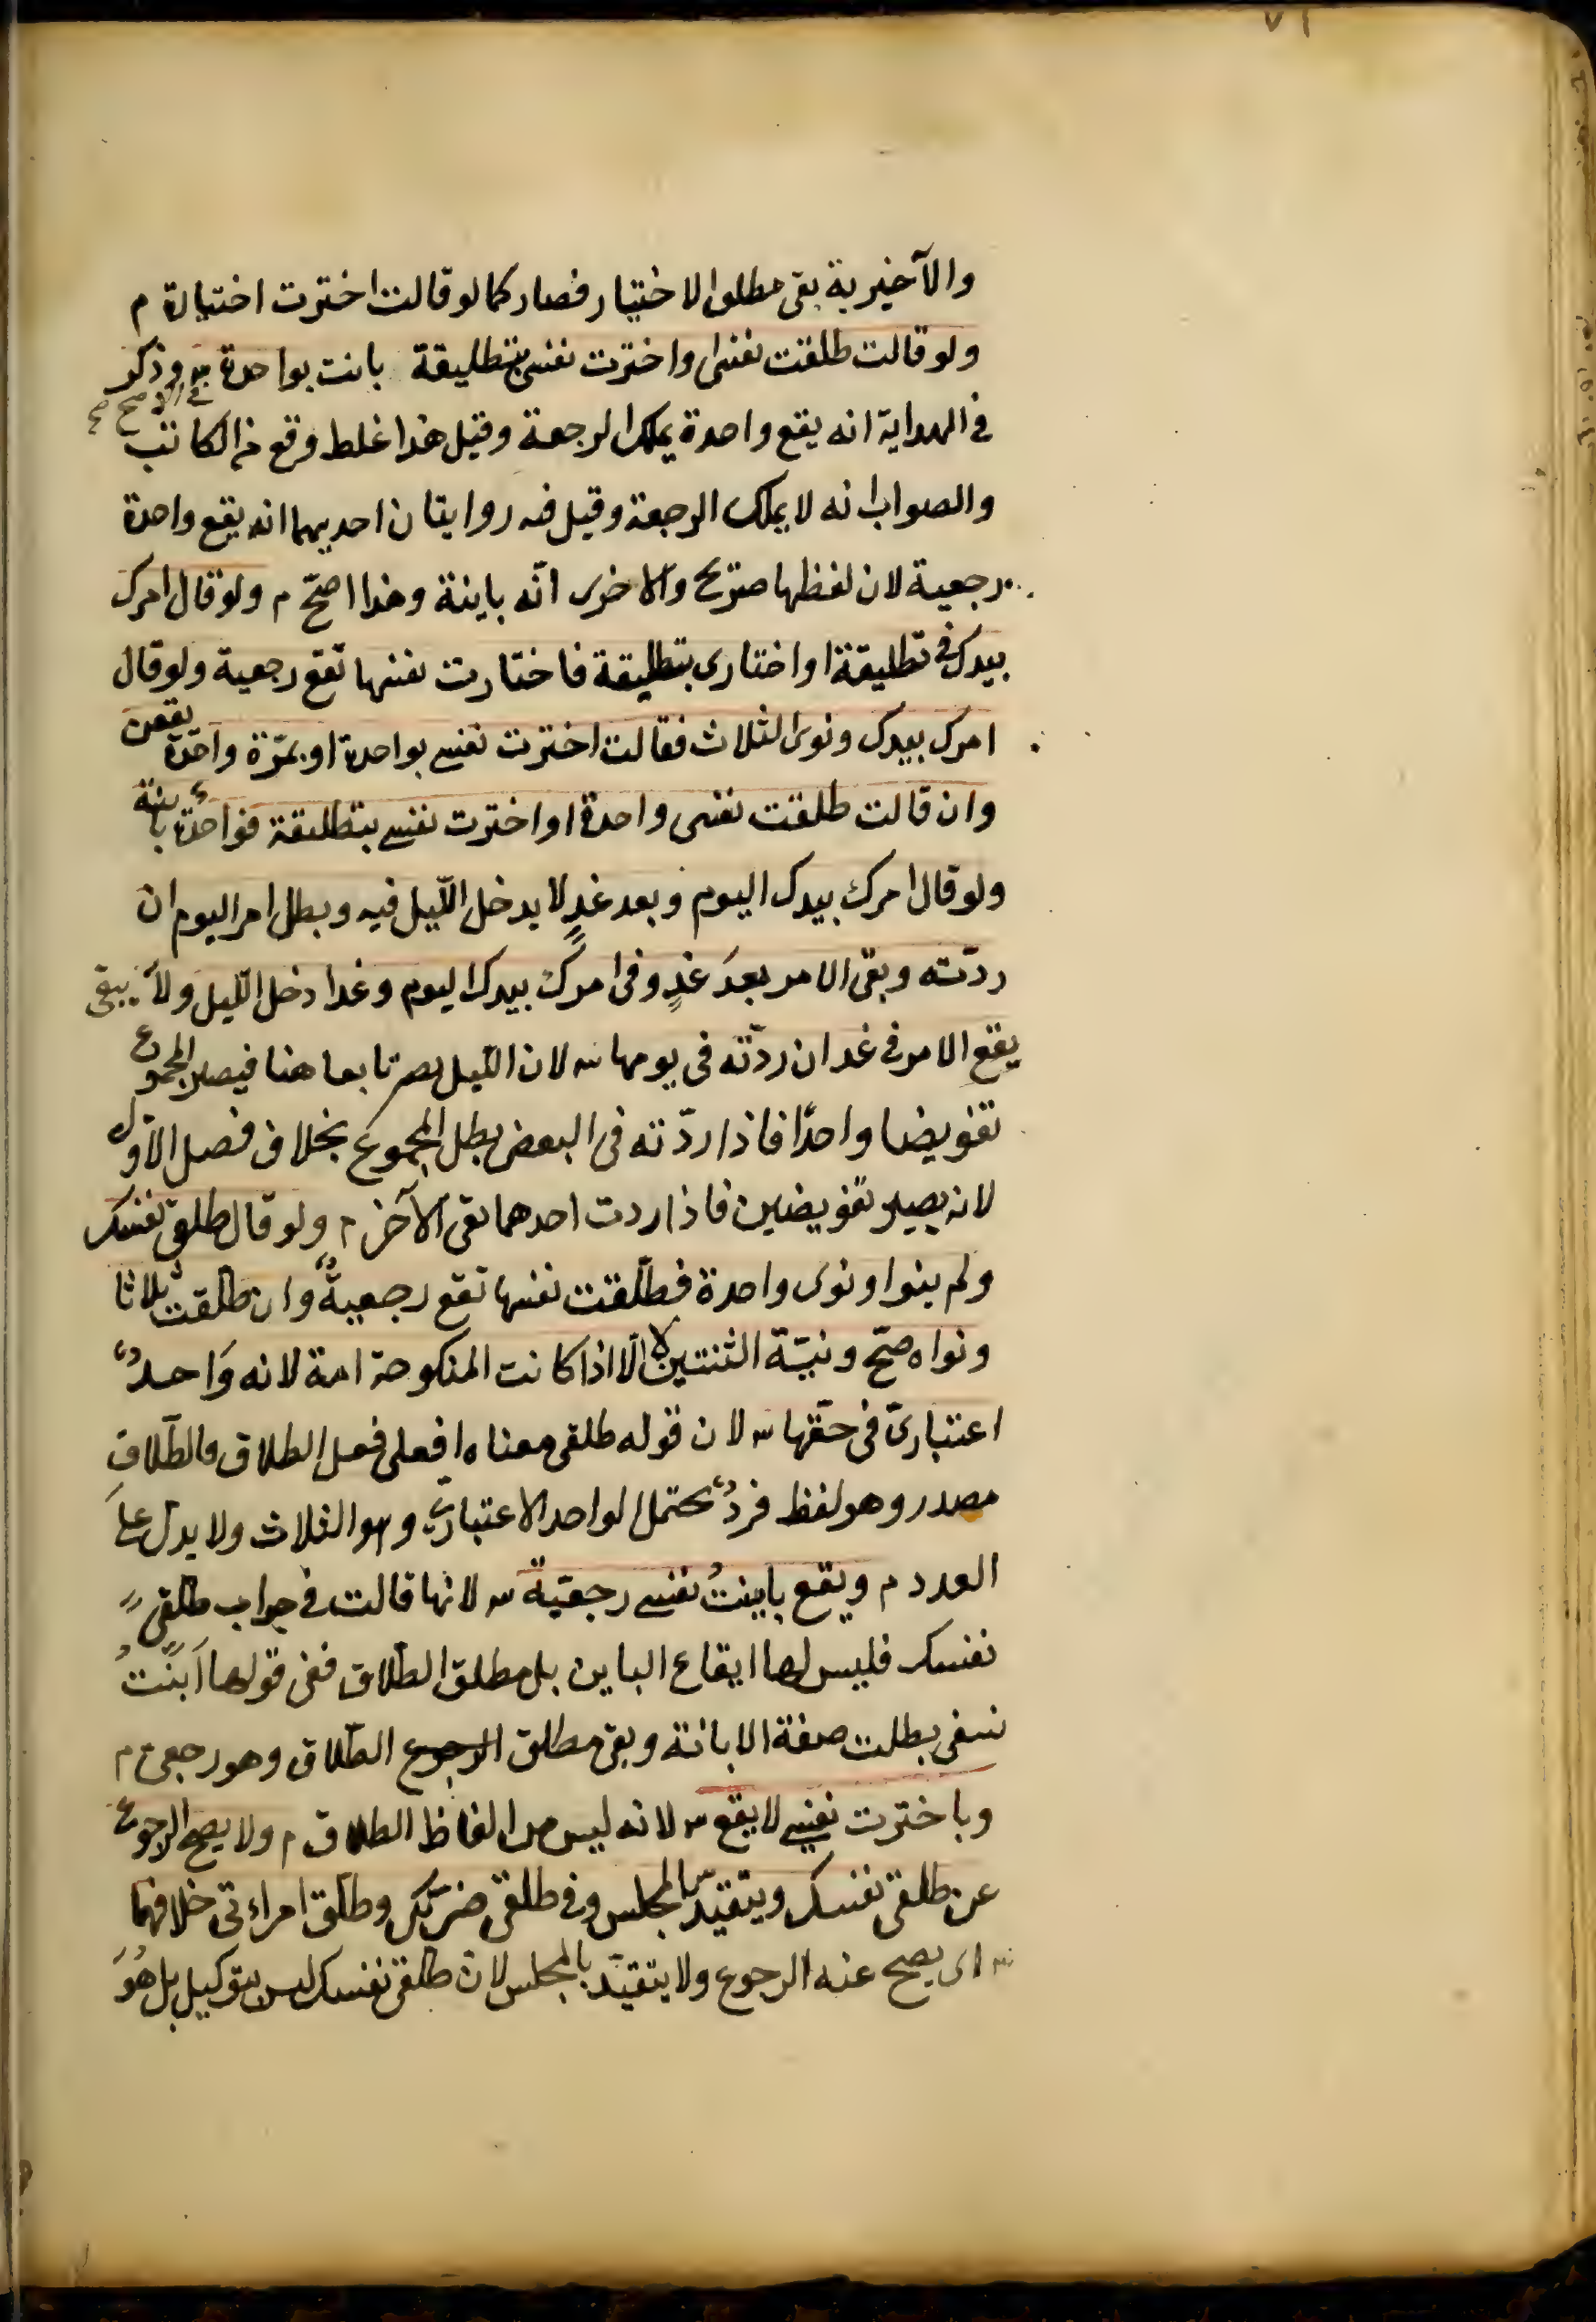 ٧١
والآخيرية بقى مطلق الاختيار فصار كما لو قالت اخترت اختيارة م
ولو قالت طلقت نفسى واخترت نفسى بتطليقة بانت بواحدة وذكر
فى الاصح صح
فى الهداية انه يقع واحدة يملك الرجعة وقيل هذا غلط وقع من الكاتب
والصواب انه لا يملك الرجعة وقيل فيه روايتان احديهما انه يقع واحدة
رجعية لان لفظها صريح والاخرى انّه باينة وهذا اصحّ م ولو قال امرك
بيدك فى تطليقة او اختارى بتطليقة فاختارت نفسها تقع رجعية ولو قال
امرك بيدك ونوى الثلاث فقالت اخترت نفسى بواحدة او بمرّة واحدة يقعن
وان قالت طلقت نفسى واحدة او اخترت نفسى بتطليقة فواحدة بائنة
ولو قال امرك بيدك اليوم وبعد غدٍ لا يدخل الليل فيه وبطل امر اليوم ان
ردّته وبقى الامر بعدَ غدٍ وفى امرك بيدك اليوم وغدا دخل الليل ولا يبقى
يقع الامر فى غد ان ردّته فى يومها س لان الليل يصر تابعا هنا فيصير المجموع
تفويضا واحدًا فاذا ردّته فى البعض بطل المجموع بخلاف فصل الاول
لانه يصير تفويضين فاذا ردت احدهما بقى الآخر م ولو قال طلقى نفسك
ولم ينو او نوى واحدة فطلّقت نفسها تقع رجعيةٌ وان طلّقت ثلاثا
ونواه صحّ ونيّة الثنتين لا الّا اذا كانت المنكوحة امة لانه وَاحدٌ
اعتبارىّ فى حقّها س لان قوله طلقى معناه افعلى فعل الطلاق والطّلاق
مصدر وهو لفظ فردٌ يحتمل الواحد الاعتبارىّ وهو الثلاث ولا يدلّ على
العدد م ويقع بابينتُ نفسى رجعيّة س لانها قالت فى جواب طلّقى
نفسك فليس لها ايقاع الباين بل مطلق الطّلاق ففى قولها اَبَنْتُ
نسفى بطلت صفة الابانة وبقى مطلق الرجوع الطّلاق وهو رجعىّ م
وباخترت نفسى لا يقع س لانه ليس من الفاظ الطلاق م ولا يصح الرجوع
عن طلقى نفسك ويتقيّد بالمجلس وفى طلقى ضرتك وطلّق امراءتى خلافهما
س اى يصح عنه الرجوع ولا يتقيّد بالمجلس لان طلقى نفسك ليس بتوكيل بل هُوَ